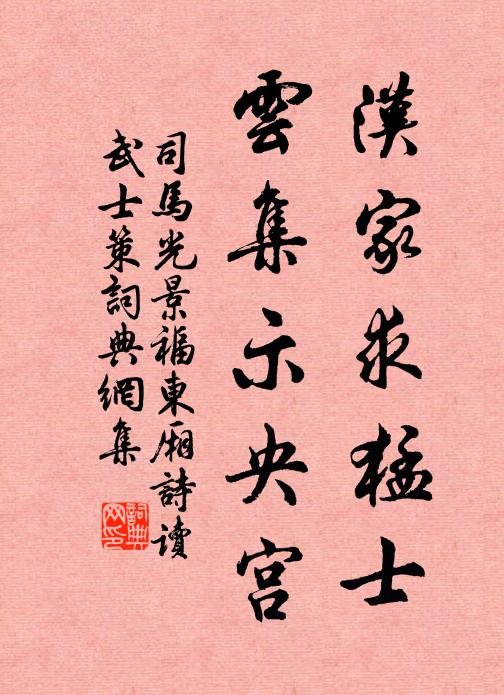 漢家求猛士
雲集示央宮
司馬光景福東厢詩讀
武士策詞典網集
詞典网印